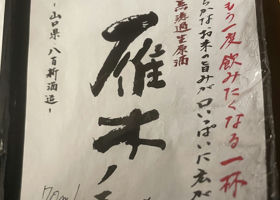 もう一度飲みたくなる一杯
らかなお米の旨みが口いっぱいに広が
無濾過生原酒
雁木ノ
-山口県 八百新酒造-